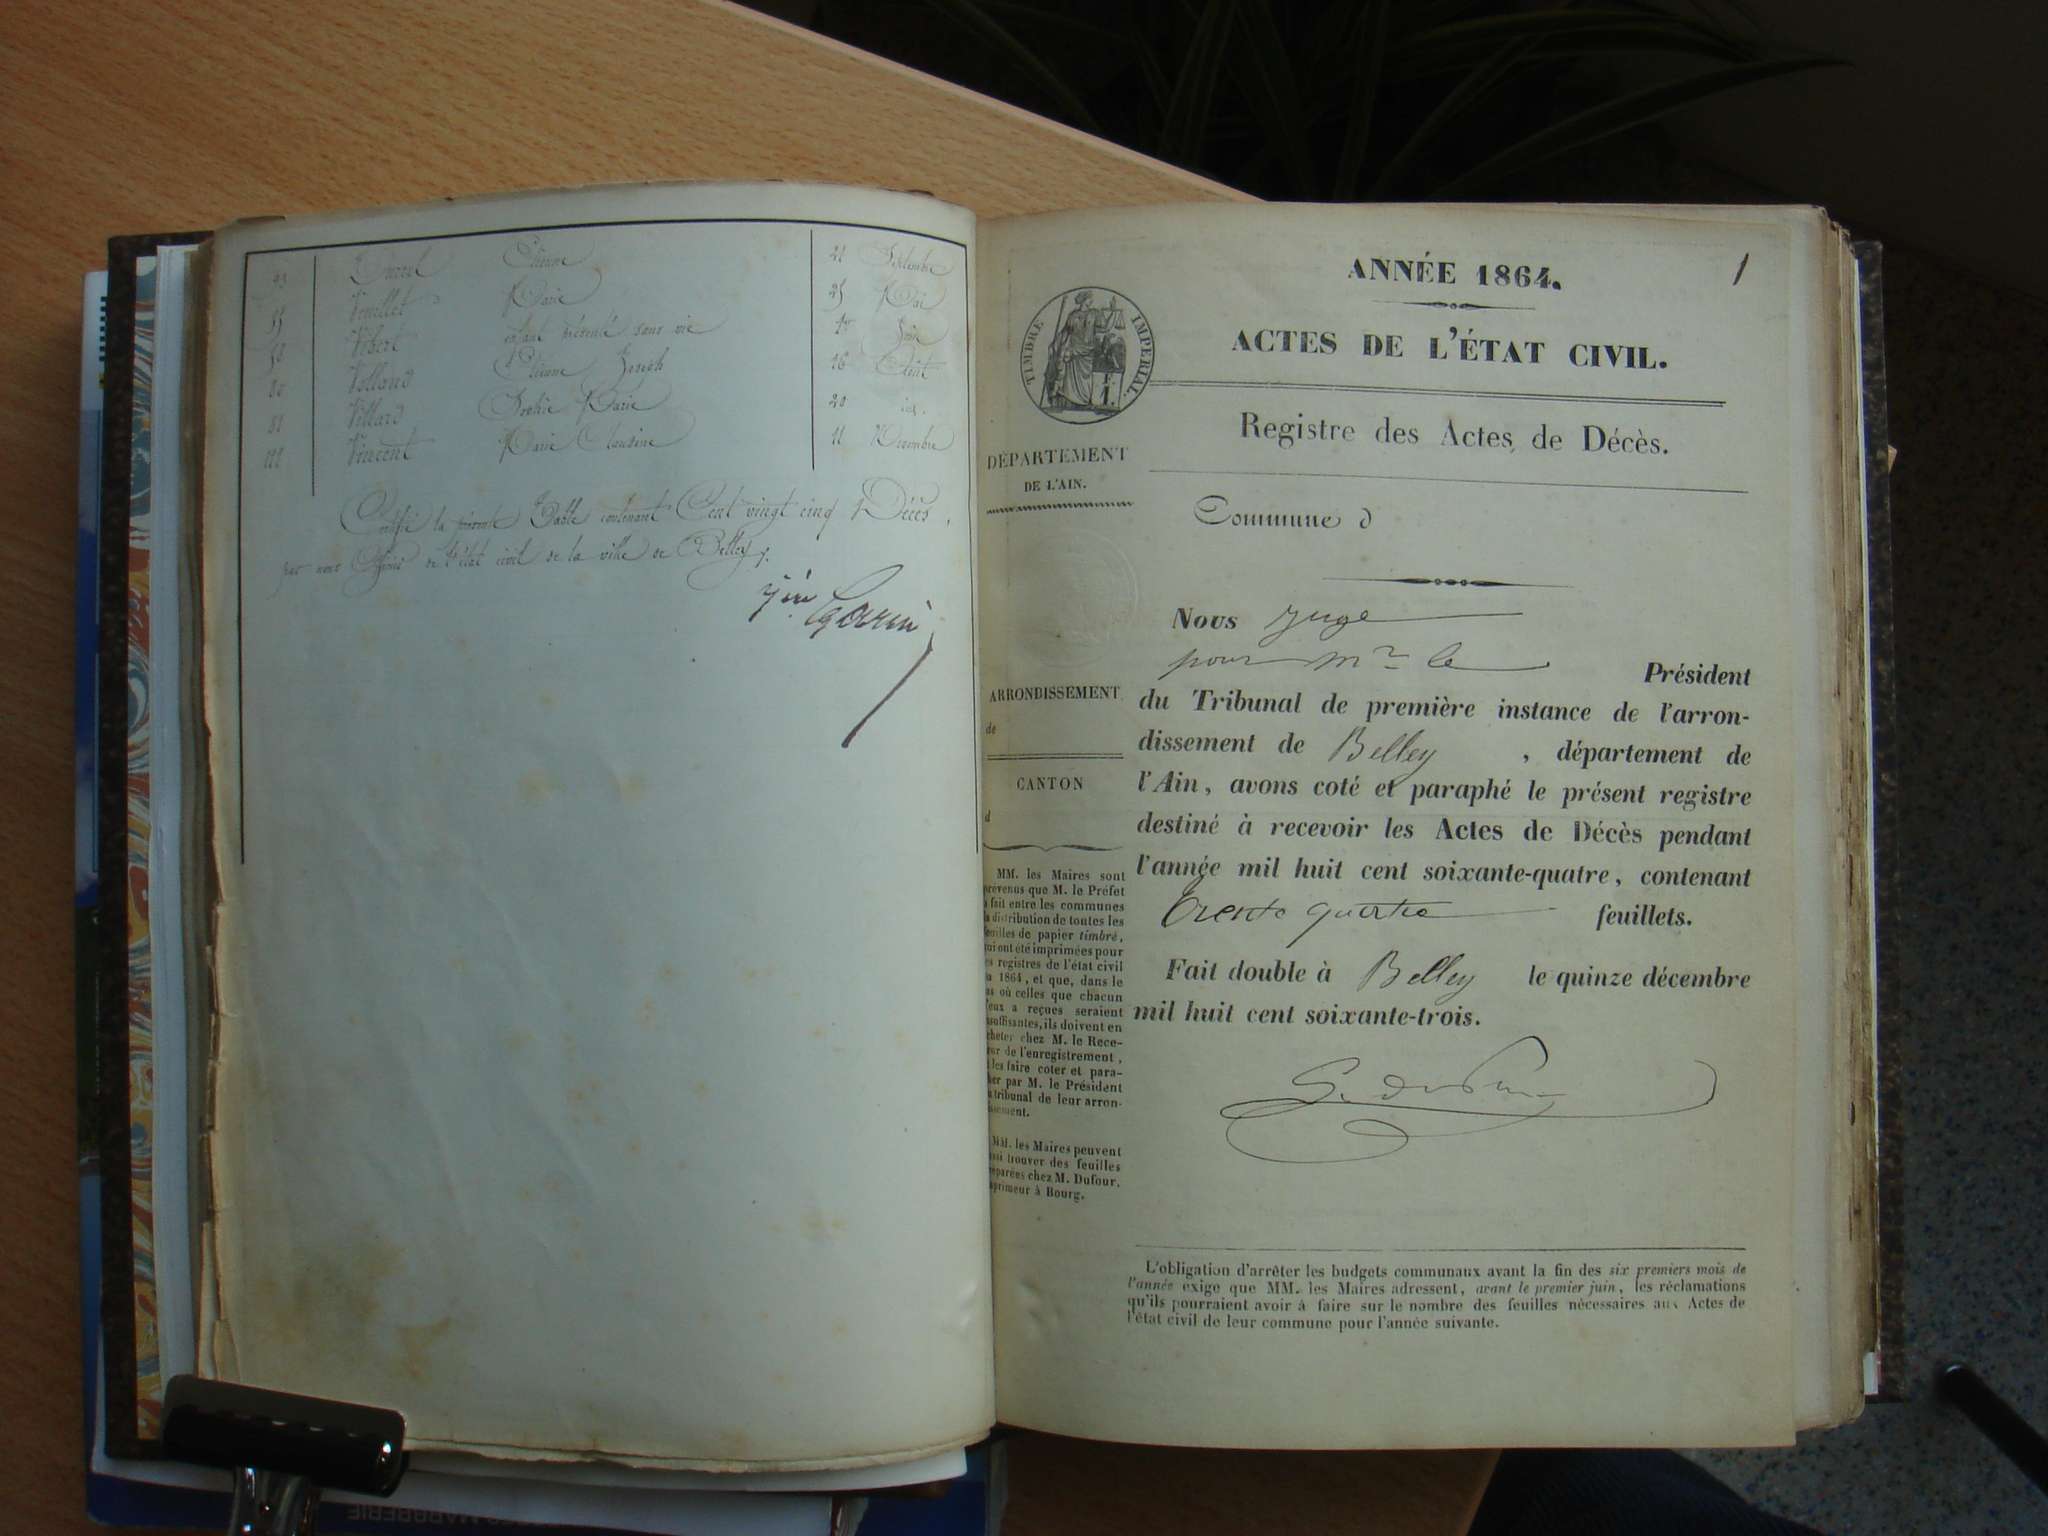 Étienne 21 Septembre
95 Vouillet Marie 25 Mai
58 Vibert enfant présenté sans vie 1er Juin
80 Volland Étienne Joseph 16 Août
81 Villard Marie 20 id.
Vincent Marie Claudine 11 Décembre
Certifié la présente Table contenant Cent vingt cinq Décès,
par nous Officier de l'état civil de la ville de Belley.
1
ANNÉE 1864.
TIMBRE IMPERIAL.
ACTES DE L'ÉTAT CIVIL.
Registre des Actes de Décès.
DÉPARTEMENT
DE L'AIN.
Commune d
ARRONDISSEMENT
de
CANTON
d
MM. les Maires sont
prévenus que M. le Préfet
a fait entre les communes
la distribution de toutes les
feuilles de papier timbré,
qui ont été imprimées pour
les registres de l'état civil
1864, et que, dans le
cas où celles que chacun
d'eux a reçues seraient
insuffisantes, ils doivent en
acheter chez M. le Rece-
veur de l'enregistrement,
les faire coter et para-
pher par M. le Président
du tribunal de leur arron-
dissement.
MM. les Maires peuvent
aussi trouver des feuilles
préparées chez M. Dufour,
imprimeur à Bourg.
Nous Juge
pour Mr le Président
du Tribunal de première instance de l'arron-
dissement de Belley, département de
l'Ain, avons coté et paraphé le présent registre
destiné à recevoir les Actes de Décès pendant
l'année mil huit cent soixante-quatre, contenant
trente quatre feuillets.
Fait double à Belley le quinze décembre
mil huit cent soixante-trois.
L'obligation d'arrêter les budgets communaux avant la fin des six premiers mois de
l'année exige que MM. les Maires adressent, avant le premier juin, les réclamations
qu'ils pourraient avoir à faire sur le nombre des feuilles nécessaires aux Actes de
l'état civil de leur commune pour l'année suivante.